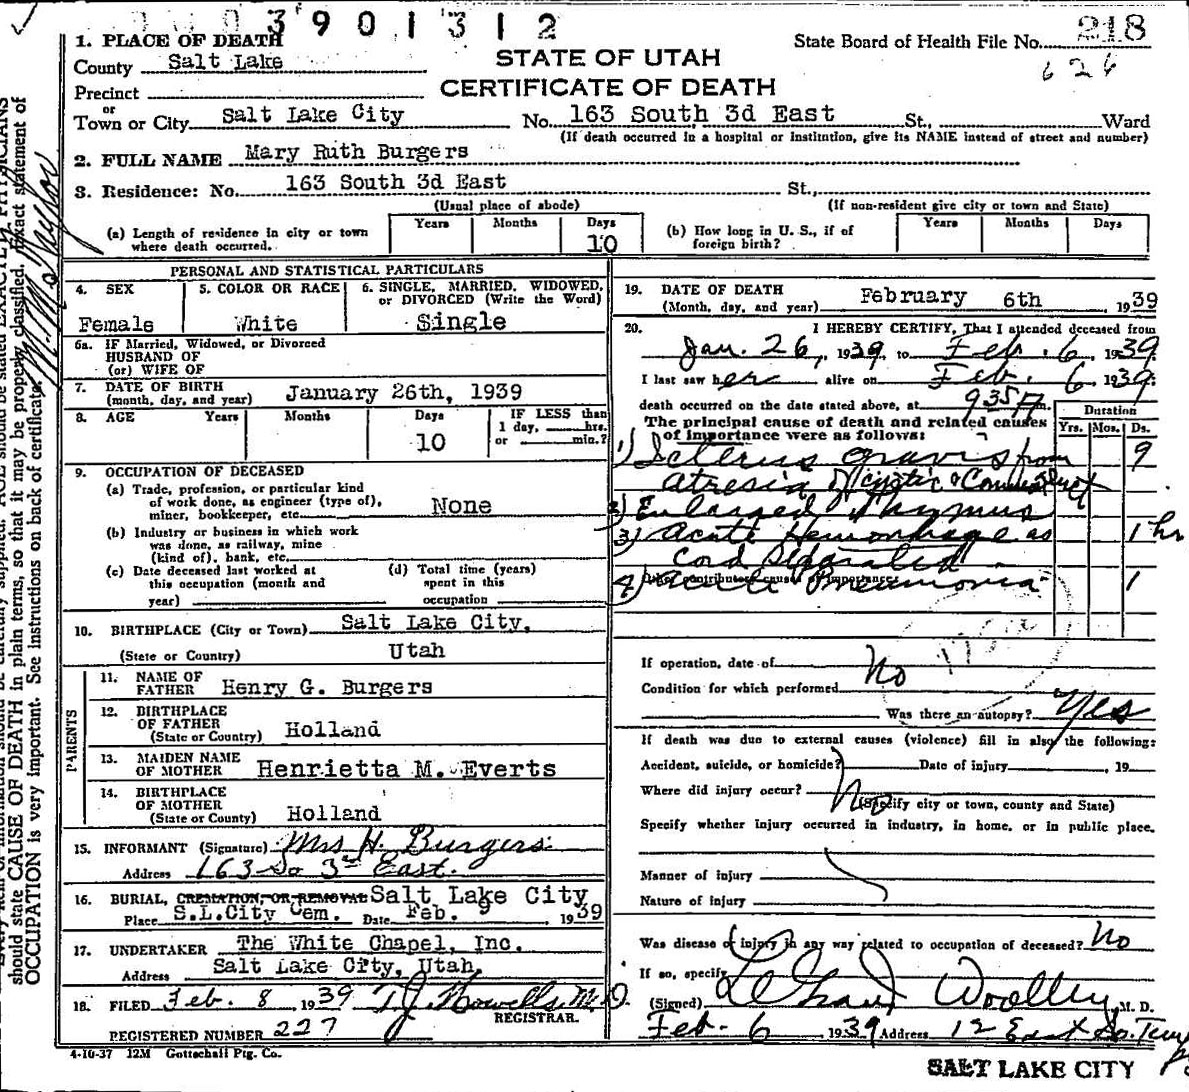 3901312
1. PLACE OF DEATH
County Salt Lake
STATE OF UTAH
CERTIFICATE OF DEATH
State Board of Health File No. 218
626
Precinct
or
Town or City Salt Lake City No. 163 South 3d East St., Ward
(If death occurred in a hospital or institution, give its NAME instead of street and number)
2. FULL NAME Mary Ruth Burgers
3. Residence: No. 163 South 3d East St.,
(Usual place of abode) (If non-resident give city or town and State)
(a) Length of residence in city or town where death occurred. Years Months Days 10
(b) How long in U. S., if of foreign birth? Years Months Days
PERSONAL AND STATISTICAL PARTICULARS
4. SEX Female
5. COLOR OR RACE White
6. SINGLE, MARRIED, WIDOWED, or DIVORCED (Write the Word) Single
6a. IF Married, Widowed, or Divorced
HUSBAND OF
(or) WIFE OF
7. DATE OF BIRTH
(month, day, and year) January 26th, 1939
8. AGE Years Months Days 10 IF LESS than 1 day, hrs. or min.?
9. OCCUPATION OF DECEASED
(a) Trade, profession, or particular kind
of work done, as engineer (type of),
miner, bookkeeper, etc. None
(b) Industry or business in which work
was done, as railway, mine
(kind of), bank, etc.
(c) Date deceased last worked at
this occupation (month and
year)
(d) Total time (years)
spent in this
occupation
10. BIRTHPLACE (City or Town) Salt Lake City,
(State or Country) Utah
PARENTS
11. NAME OF
FATHER Henry G. Burgers
12. BIRTHPLACE
OF FATHER
(State or Country) Holland
13. MAIDEN NAME
OF MOTHER Henrietta M. Everts
14. BIRTHPLACE
OF MOTHER
(State or Country) Holland
15. INFORMANT (Signature) Mrs H. Burgers
Address 163 So 3rd East.
16. BURIAL, CREMATION, OR REMOVAL Salt Lake City
Place S.L.City Cem. Date Feb. 9 1939
17. UNDERTAKER The White Chapel, Inc.
Address Salt Lake City, Utah,
18. FILED Feb. 8, 1939 T.J. Howells, M.D.
REGISTRAR.
REGISTERED NUMBER 227
4-10-37 12M Gottschall Ptg. Co.
19. DATE OF DEATH
(Month, day, and year) February 6th 1939
20. I HEREBY CERTIFY, That I attended deceased from
Jan. 26, 1939, to Feb. 6, 1939.
I last saw her alive on Feb. 6, 1939.
death occurred on the date stated above, at 9 35 A m.
The principal cause of death and related causes
of importance were as follows:
Duration
Yrs. Mos. Ds.
1) Icterus gravis from 9
atresia of cystic & Common duct
2) Enlarged Thymus
3) Acute Hemorrhage as 1 hr
Cord Separated
Other contributory causes of importance:
4) Acute Pneumonia 1
If operation, date of No
Condition for which performed
Was there an autopsy? Yes
If death was due to external causes (violence) fill in also the following:
Accident, suicide, or homicide? Date of injury , 19
Where did injury occur? No
(Specify city or town, county and State)
Specify whether injury occurred in industry, in home, or in public place.
Manner of injury
Nature of injury
Was disease or injury in any way related to occupation of deceased? No
If so, specify
(Signed) LeGrand Woolley M. D.
Feb. 6 1939 Address 12 East So. Temp
SALT LAKE CITY
should state CAUSE OF DEATH in plain terms, so that it may be properly classified. Exact statement of
OCCUPATION is very important. See instructions on back of certificate.